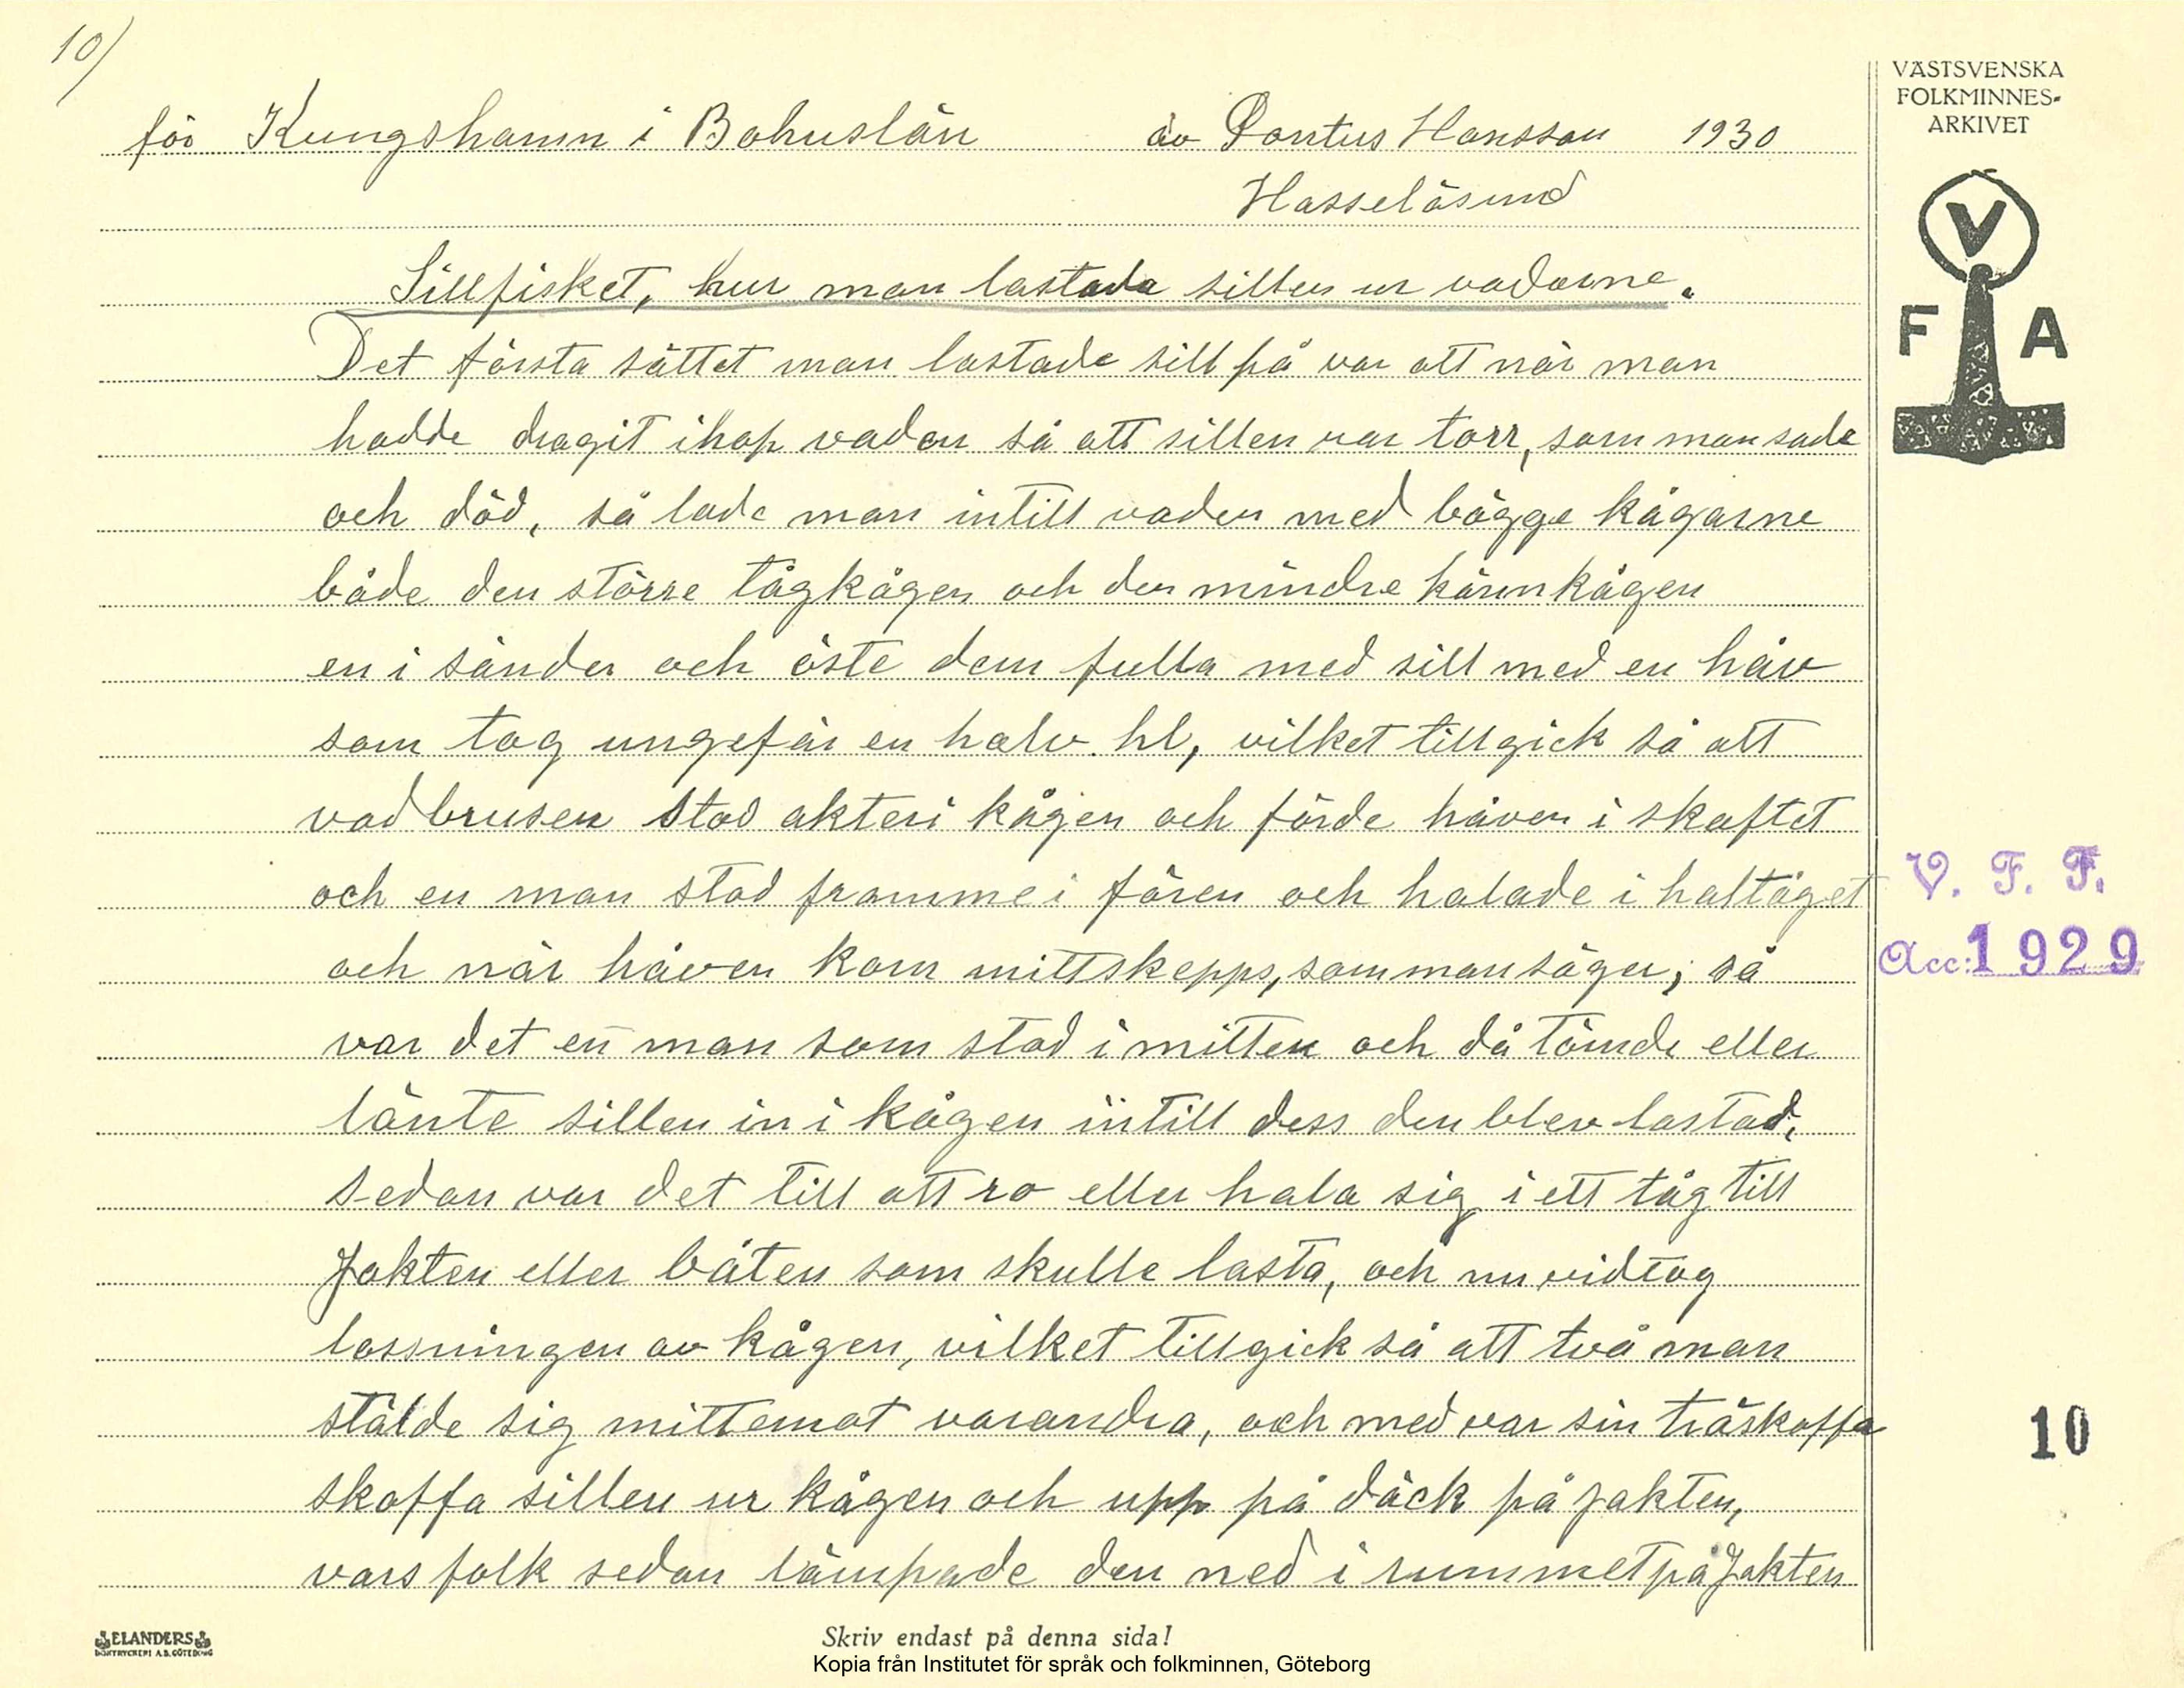 10)
för Kungshamn i Bohuslän av Pontus Hansson 1930
Hasselösund
Sillfisket, hur man lastade sillen ur vadarne.
Det första sättet man lastade sill på var att när man
hadde dragit ihop vaden så att sillen var torr, som man sade
och död, så lade man intill vaden med bägge kågarne
både den större tågkågen och den mindre kärnkågen
en i sänder och öste dem fulla med sill med en håv
som tog ungefär en halv hl, vilket tillgick så att
vadbrusen stod akter i kågen och förde håven i skaftet
och en man stod framme i fören och halade i haltåget
och när håven kom mittskepps, som man säger, så
var det en man som stod i mitten och då tömde eller
länte sillen in i kågen intill dess den blev lastad,
sedan var det till att ro eller hala sig i ett tåg till
Jakten eller båten som skulle lasta, och nu vidtog
lossningen av kågen, vilket tillgick så att två man
stälde sig mittemot varandra, och med var sin träskoffa
skoffa sillen ur kågen och upp på däck på jakten,
vars folk sedan lämpade den ned i rummet på Jakten
VÄSTSVENSKA
FOLKMINNES-
ARKIVET
V
F A
V. F. F.
Acc: 1929
10
ELANDERS
BOKTRYCKERI A.B. GÖTEBORG
Skriv endast på denna sida!
Kopia från Institutet för språk och folkminnen, Göteborg